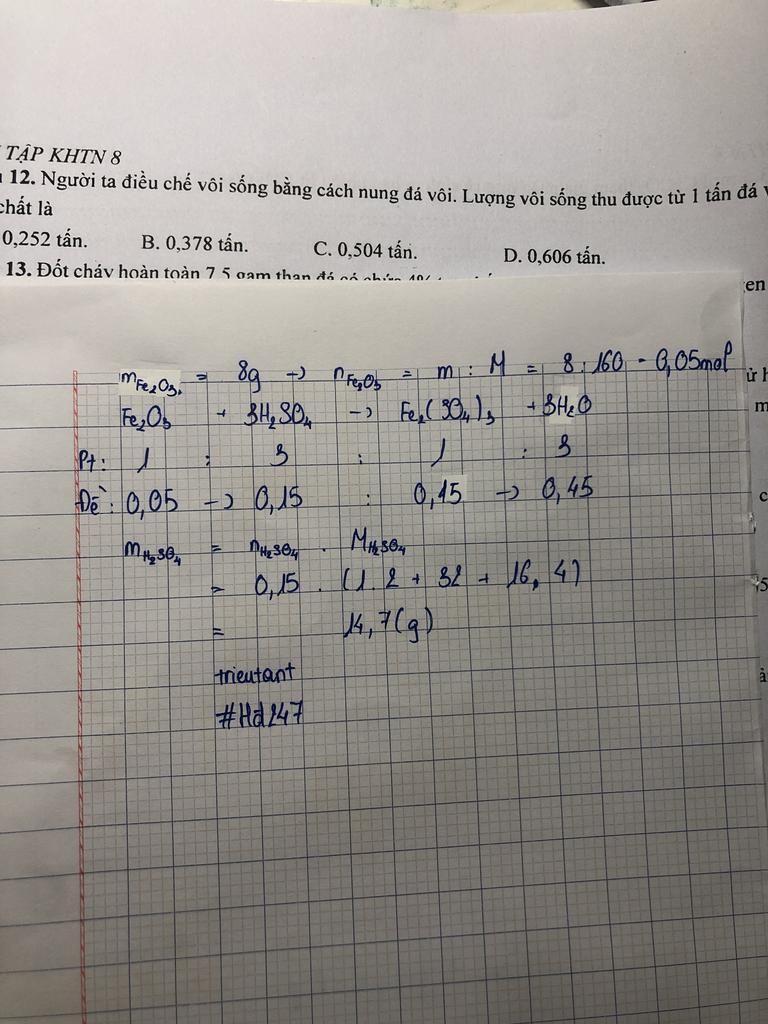 TẬP KHTN 8
12. Người ta điều chế vôi sống bằng cách nung đá vôi. Lượng vôi sống thu được từ 1 tấn đá
chất là
0,252 tấn. B. 0,378 tấn. C. 0,504 tấn. D. 0,606 tấn.
13. Đốt cháy hoàn toàn 7,5 gam than đá có chứa 4%
m Fe₂O₃ = 8g → n Fe₂O₃ = m : M = 8 : 160 = 0,05mol
Fe₂O₃ + 3H₂SO₄ → Fe₂(SO₄)₃ + 3H₂O
Pt: 1 : 3 : 1 : 3
Đề: 0,05 → 0,15 : 0,15 → 0,45
m H₂SO₄ = n H₂SO₄ . M H₂SO₄
= 0,15 . (1.2 + 32 + 16.4)
= 14,7(g)
trieutant
#Hd247